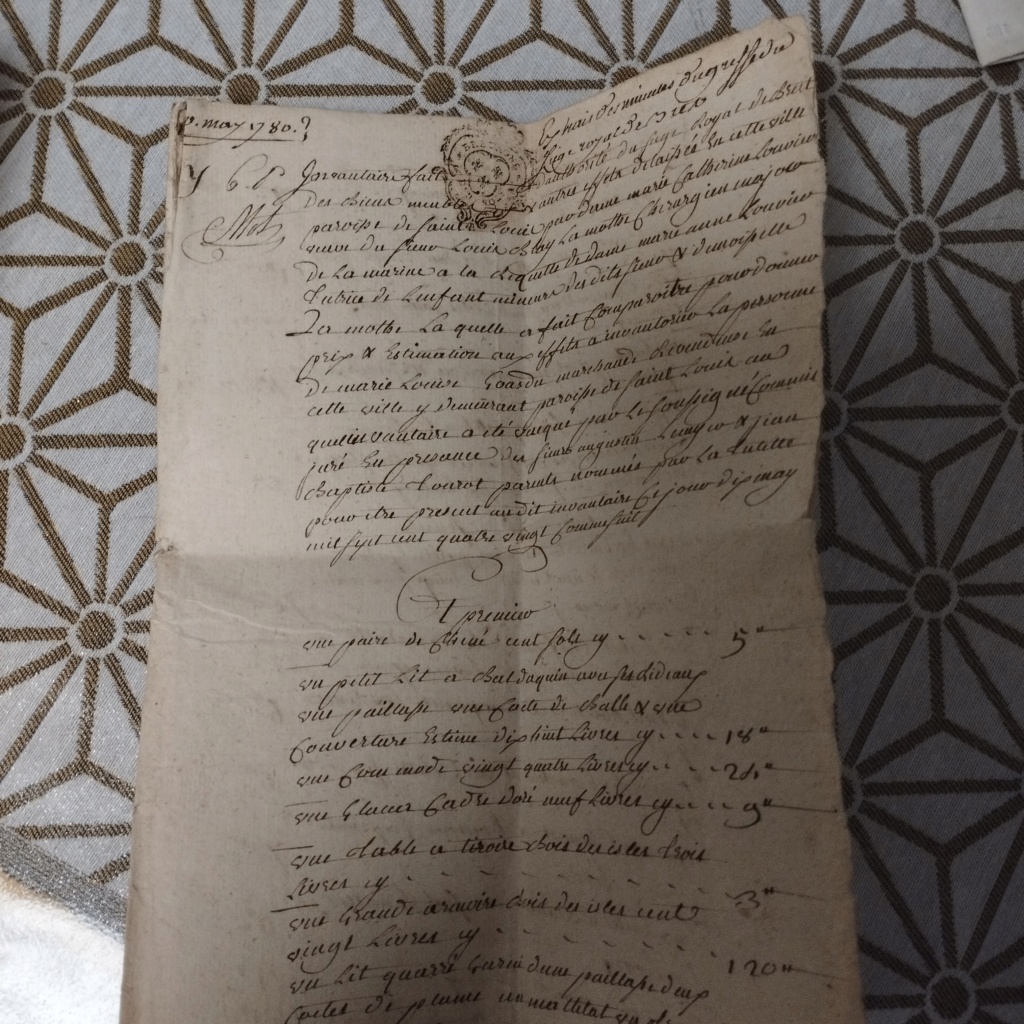 10. may 1780.
Extrait des minutes du greffe du
siege royal de Brest
Inventaire fait d'authorité du siege Royal de Brest
des biens meuble & autres effets delaissés En cette ville
paroisse de Sainte Louis par dame marie Catherine Louvieu
veuve du sieur Louis Blay La mothe Chirurgien major
de La marine a la Requette de dame marie anne Louvieu
tutrice de Lenfant mineure des dits sieur & demoiselle
La mothe La quelle a fait Comparoître pour donner
prix & Estimation aux effets a inventorier La personne
de marie Louise marchande Revendeuse En
cette ville y demeurant paroisse de Saint Louis au
quel invantaire a eté vacqué par Le soussigné Commis
juré En presance des sieurs augustin & jean
baptiste parents nommés par La tutelle
pour etre present audit invantaire Ce jour dix may
mil sept cent quatre vingt Comme suit
premier
une paire de Chené cent sols cy 5"
un petit Lit a baldaquin avec ses Rideaux
une paillasse une Coete de balle & une
Couverture Estimé dix huit Livres cy 18"
une Commode vingt quatre Livres cy 24"
une Glace Cadre doré neuf Livres cy 9"
une table a tiroire bois des isles trois
Livres cy 3"
une Grande armoire bois des isles cent
vingt Livres cy 120"
un Lit quarré Garni d'une paillasse deux
Coetes de plume un mattelat